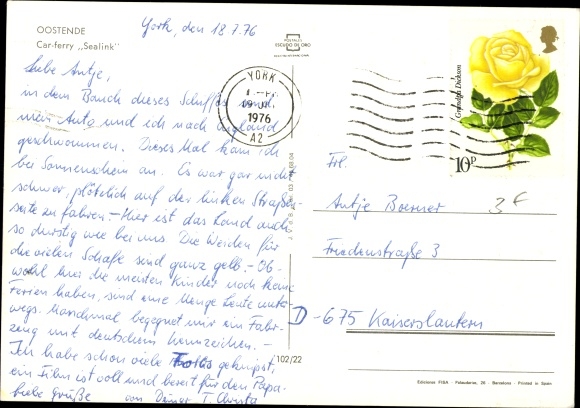 OOSTENDE
Car-ferry „Sealink"
York, den 18.7.76
POSTALES
ESCUDO DE ORO
Liebe Antje,
in dem Bauch dieses Schiffes sind
mein Auto und ich nach England
geschwommen. Dieses Mal kam ich
bei Sonnenschein an. Es war gar nicht
schwer, plötzlich auf der linken Straßen-
seite zu fahren. – Hier ist das Land auch
so durstig wie bei uns. Die Weiden für
die vielen Schafe sind ganz gelb. – Ob-
wohl hier die meisten Kinder noch keine
Ferien haben, sind eine Menge Leute unter-
wegs. Manchmal begegnet mir ein Fahr-
zeug mit deutschem Kennzeichen. –
Ich habe schon viele Fotos geknipst,
ein Film ist voll und bereit für den Papa.
Liebe Grüße von Deiner T. Christa
YORK
1976
A2
Grandpa Dickson
10p
Frl.
Antje Boerner
3€
Friedenstraße 3
D-675 Kaiserslautern
102/22
Ediciones FISA - Palaudarias, 26 - Barcelona - Printed in Spain